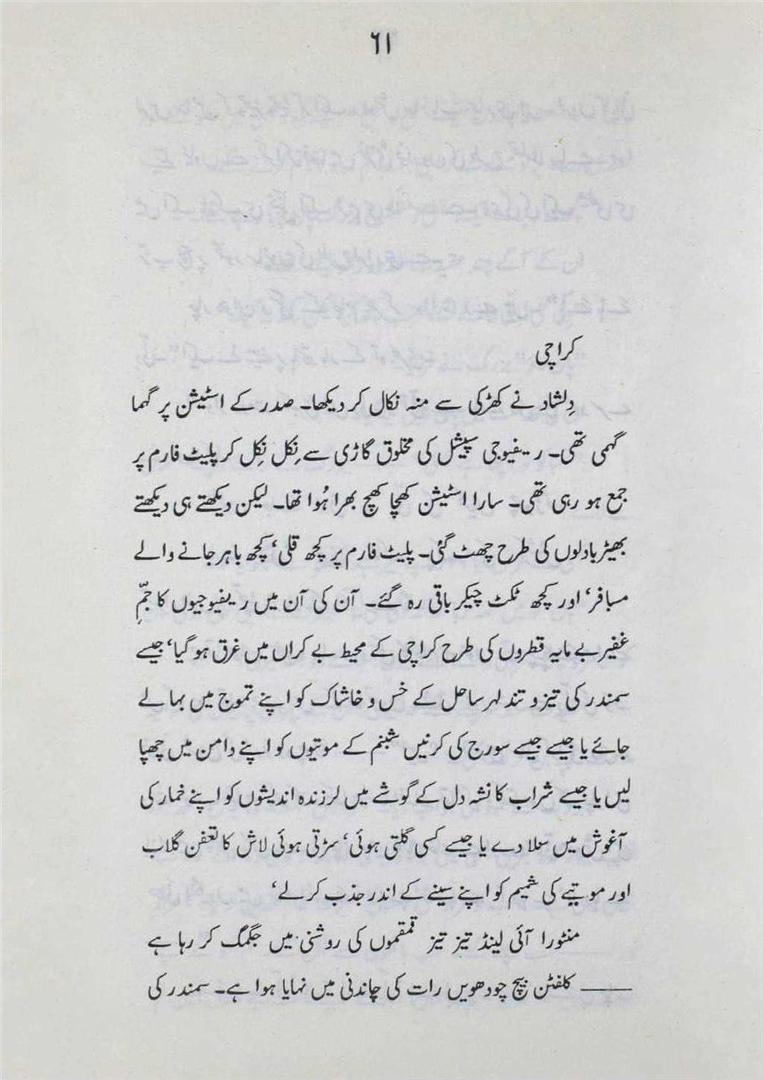 ۶۱
کراچی
دِلشاد نے کھڑکی سے منہ نکال کر دیکھا۔ صدر کے اسٹیشن پر گہما
گہمی تھی۔ ریفیوجی سپیشل کی مخلوق گاڑی سے نِکل نِکل کر پلیٹ فارم پر
جمع ہو رہی تھی۔ سارا اسٹیشن کھچا کھچ بھرا ہُوا تھا۔ لیکن دیکھتے ہی دیکھتے
بھیڑ بادلوں کی طرح چھٹ گئی۔ پلیٹ فارم پر کچھ قلی، کچھ باہر جانے والے
مسافر، اور کچھ ٹکٹ چیکر باقی رہ گئے۔ آن کی آن میں ریفیوجیوں کا جمِّ
غفیر بے مایہ قطروں کی طرح کراچی کے محیط بے کراں میں غرق ہو گیا، جیسے
سمندر کی تیز و تند لہر ساحل کے خس و خاشاک کو اپنے تموج میں بہا لے
جائے یا جیسے جیسے سورج کی کرنیں شبنم کے موتیوں کو اپنے دامن میں چھپا
لیں یا جیسے شراب کا نشہ دل کے گوشے میں لرزندہ اندیشوں کو اپنے خمار کی
آغوش میں سلا دے یا جیسے کسی گلتی ہوئی، سڑتی ہوئی لاش کا تعفن گلاب
اور موتیے کی شمیم کو اپنے سینے کے اندر جذب کر لے،
منٹورا آئی لینڈ تیز تیز قمقموں کی روشنی میں جگمگ کر رہا ہے
—— کلفٹن بیچ چودھویں رات کی چاندنی میں نہایا ہوا ہے۔ سمندر کی